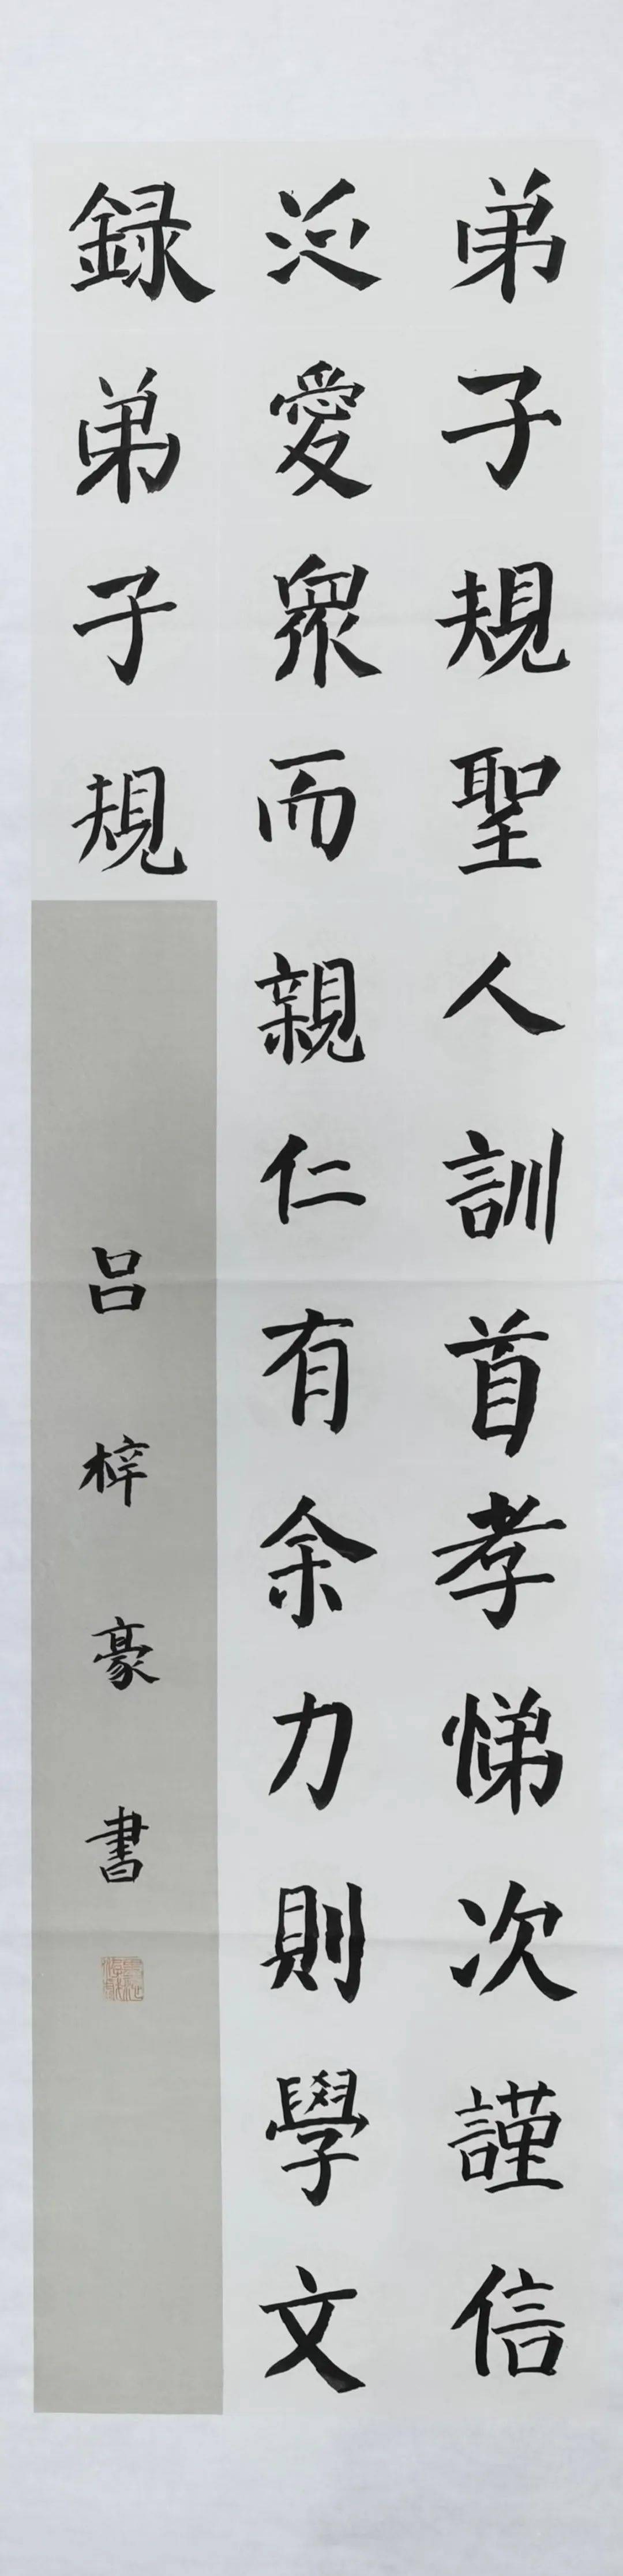 弟子規聖人訓首孝悌次謹信
泛愛衆而親仁有余力則學文
録弟子規
吕梓豪書